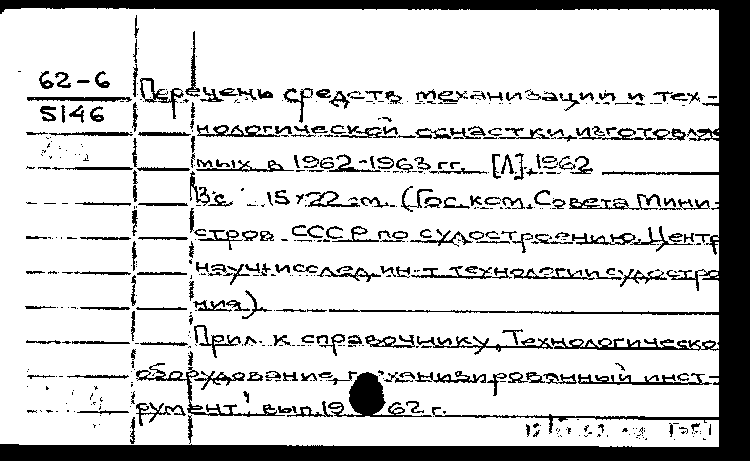 62-6
5146
Перечень средств механизации и тех-
нологической оснастки, изготовляе
мых в 1962-1963 гг. [Л], 1962
15×22 см. (Гос. ком. Совета Мини-
стров СССР по судостроению. Центр
научн.исслед. ин-т технологии судостро
ния).
Прил. к справочнику, Технологическо
оборудование, механизированный инст-
румент", вып. 19 62 г.